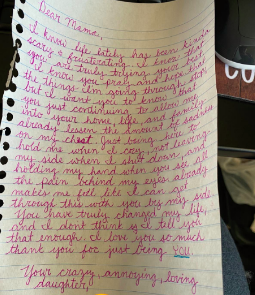 Dear Mama,
I know life lately has been kinda
scary & frustrating. I know that
you are truly trying your best
I know you pray and hope that
the things I'm going through stop
but I want you to know that
you just continuing to allow me
into your home, life, and family
already lessen the amount of sadness
on my chest. Just being here to
hold me when I cry, not leaving
my side when I shut down, and
holding my hand when you see
the pain behind my eyes already
makes me feel like I can get
through this with you by my side
You have truly changed my life,
and I dont think I tell you
that enough. I love you so much
thank you for just being you
Your crazy, annoying, loving
daughter,